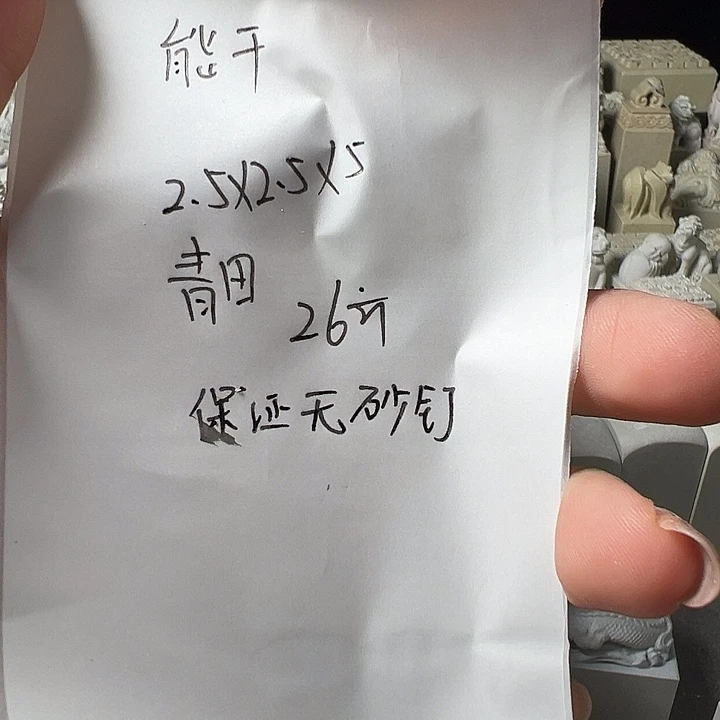 能干
2.5X2.5X5
青田 26方
保证无砂钉